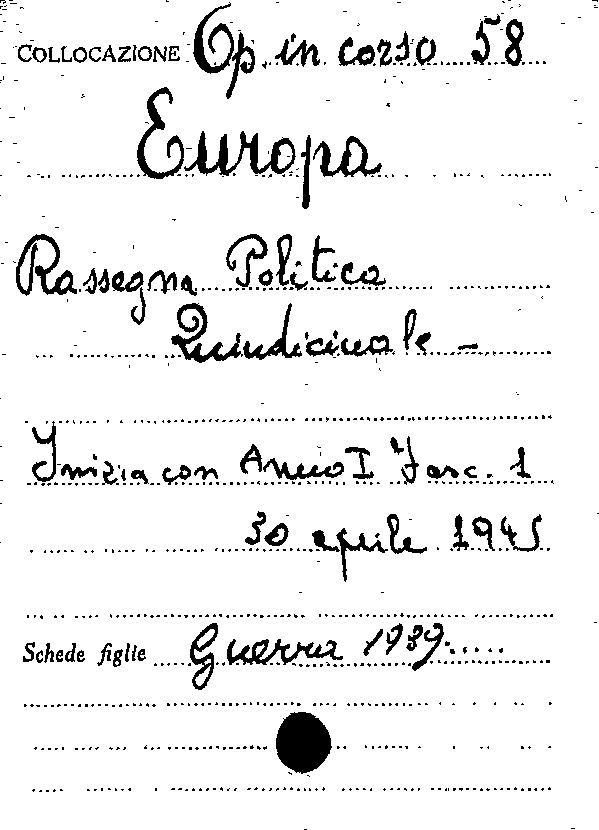 COLLOCAZIONE Op. in corso 58
Europa
Rassegna Politica
Quindicinale -
Inizia con Anno I Fasc. 1
30 aprile 1945
Schede figlie Guerra 1939.....